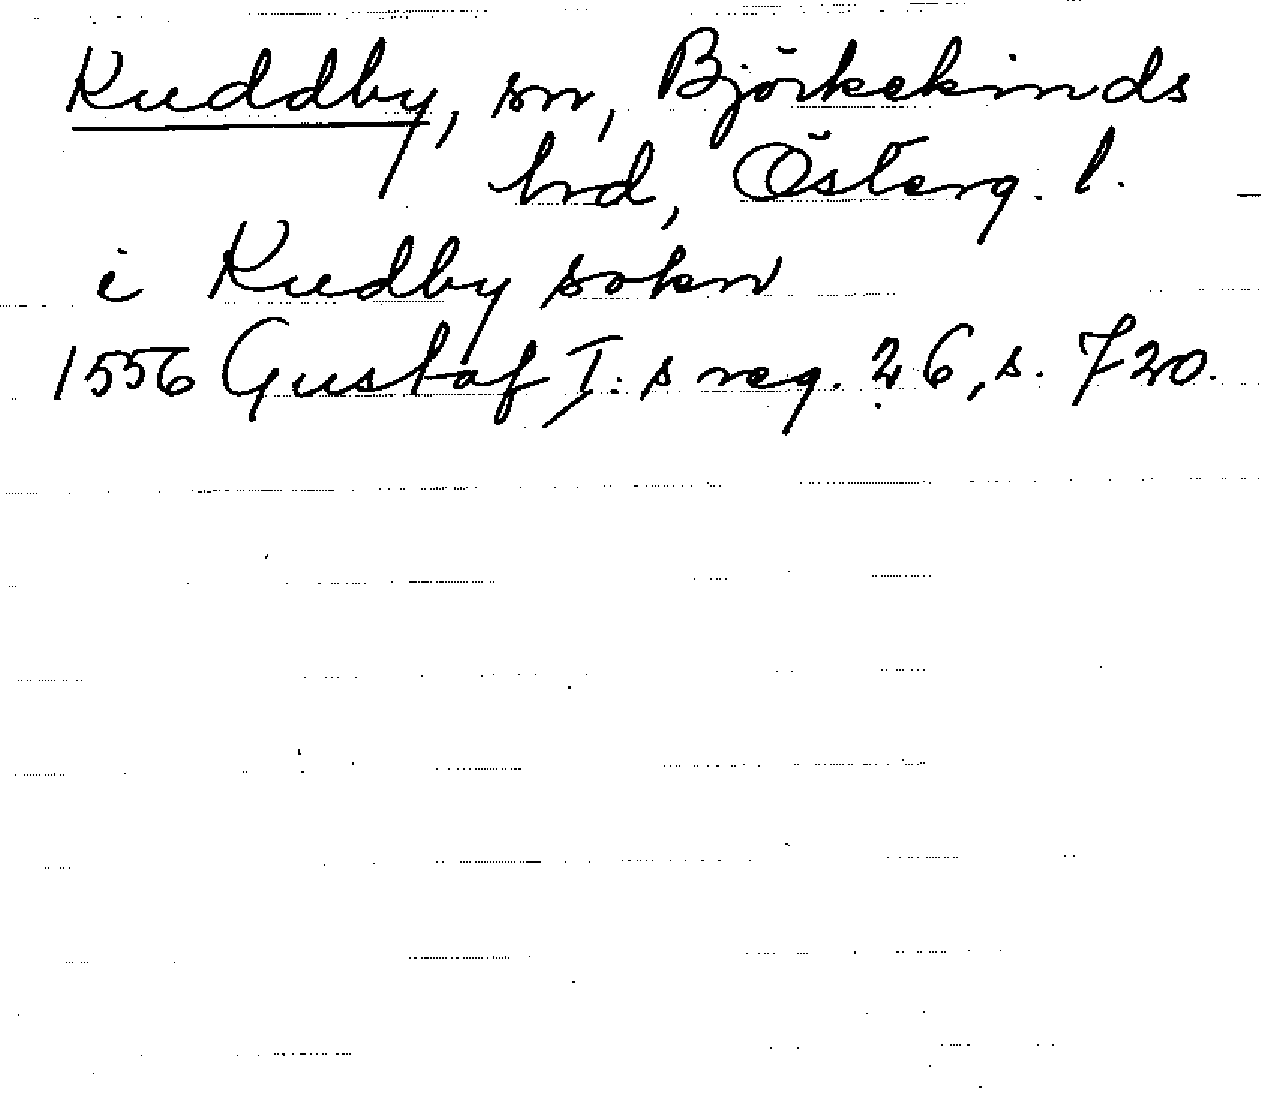 Kuddby, sn, Björkekinds
hrd, Österg. l.
i Kudby sokn
1556 Gustaf I:s reg. 26, s. 720.